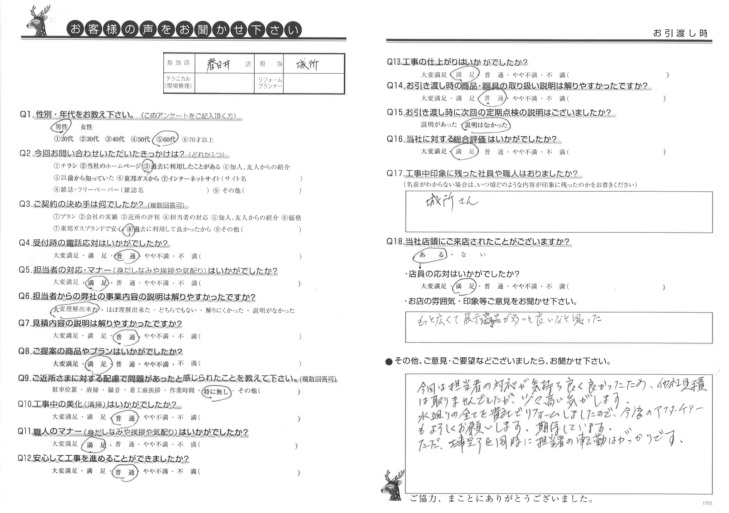 お客様の声をお聞かせ下さい
お引渡し時
担当店 春日井 店 担当 城所
テクニカル(現場管理) リフォームプランナー
Q1.性別・年代をお教え下さい。(このアンケートをご記入頂く方)
男性 女性
①20代 ②30代 ③40代 ④50代 ⑤60代 ⑥70才以上
Q2.今回お問い合わせいただいたきっかけは?(どれか1つ)
①チラシ ②当社のホームページ ③過去に利用したことがある ④知人、友人からの紹介
⑤以前から知っていた ⑥東邦ガスから ⑦インターネットサイト(サイト名 )
⑧雑誌・フリーペーパー(雑誌名 ) ⑨その他( )
Q3.ご契約の決め手は何でしたか?(複数回答可)
①プラン ②会社の実績 ③近所の評判 ④担当者の対応 ⑤知人、友人からの紹介 ⑥価格
⑦東邦ガスブランドで安心 ⑧過去に利用して良かったから ⑨その他( )
Q4.受付時の電話応対はいかがでしたか?
大変満足・満足・普通・やや不満・不満( )
Q5.担当者の対応・マナー(身だしなみや挨拶や気配り)はいかがでしたか?
大変満足・満足・普通・やや不満・不満( )
Q6.担当者からの弊社の事業内容の説明は解りやすかったですか?
大変理解出来た・ほぼ理解出来た・どちらでもない・解りにくかった・説明がなかった
Q7.見積内容の説明は解りやすかったですか?
大変満足・満足・普通・やや不満・不満( )
Q8.ご提案の商品やプランはいかがでしたか?
大変満足・満足・普通・やや不満・不満( )
Q9.ご近所さまに対する配慮で問題があったと感じられたことを教えて下さい。(複数回答可)
駐車位置・清掃・騒音・着工前挨拶・作業時間・特に無し・その他( )
Q10.工事中の美化(清掃)はいかがでしたか?
大変満足・満足・普通・やや不満・不満( )
Q11.職人のマナー(身だしなみや挨拶や気配り)はいかがでしたか?
大変満足・満足・普通・やや不満・不満( )
Q12.安心して工事を進めることができましたか?
大変満足・満足・普通・やや不満・不満( )
Q13.工事の仕上がりはいかがでしたか?
大変満足・満足・普通・やや不満・不満( )
Q14.お引き渡し時の商品・器具の取り扱い説明は解りやすかったですか?
大変満足・満足・普通・やや不満・不満( )
Q15.お引き渡し時に次回の定期点検の説明はございましたか?
説明があった・説明はなかった
Q16.当社に対する総合評価はいかがでしたか?
大変満足・満足・普通・やや不満・不満( )
Q17.工事中印象に残った社員や職人はおりましたか?
(名前がわからない場合は、いつ頃どのような内容が印象に残ったのかをお書きください)
城所さん
Q18.当社店頭にご来店されたことがございますか?
ある・ない
・店員の応対はいかがでしたか?
大変満足・満足・普通・やや不満・不満( )
・お店の雰囲気・印象等ご意見をお聞かせ下さい。
もっと広くて展示商品が多いと良いなと思った
●その他、ご意見・ご要望などございましたら、お聞かせ下さい。
今回は担当者の対応が気持ち良く良かったため、他社見積
は取りませんでしたが、少々高い気がします。
水廻りの全てを貴社でリフォームしましたので、今後のアフターケアー
もよろしくお願いします。期待しています。
ただ、完了と同時に担当者の転勤はがっかりです。
ご協力、まことにありがとうございました。